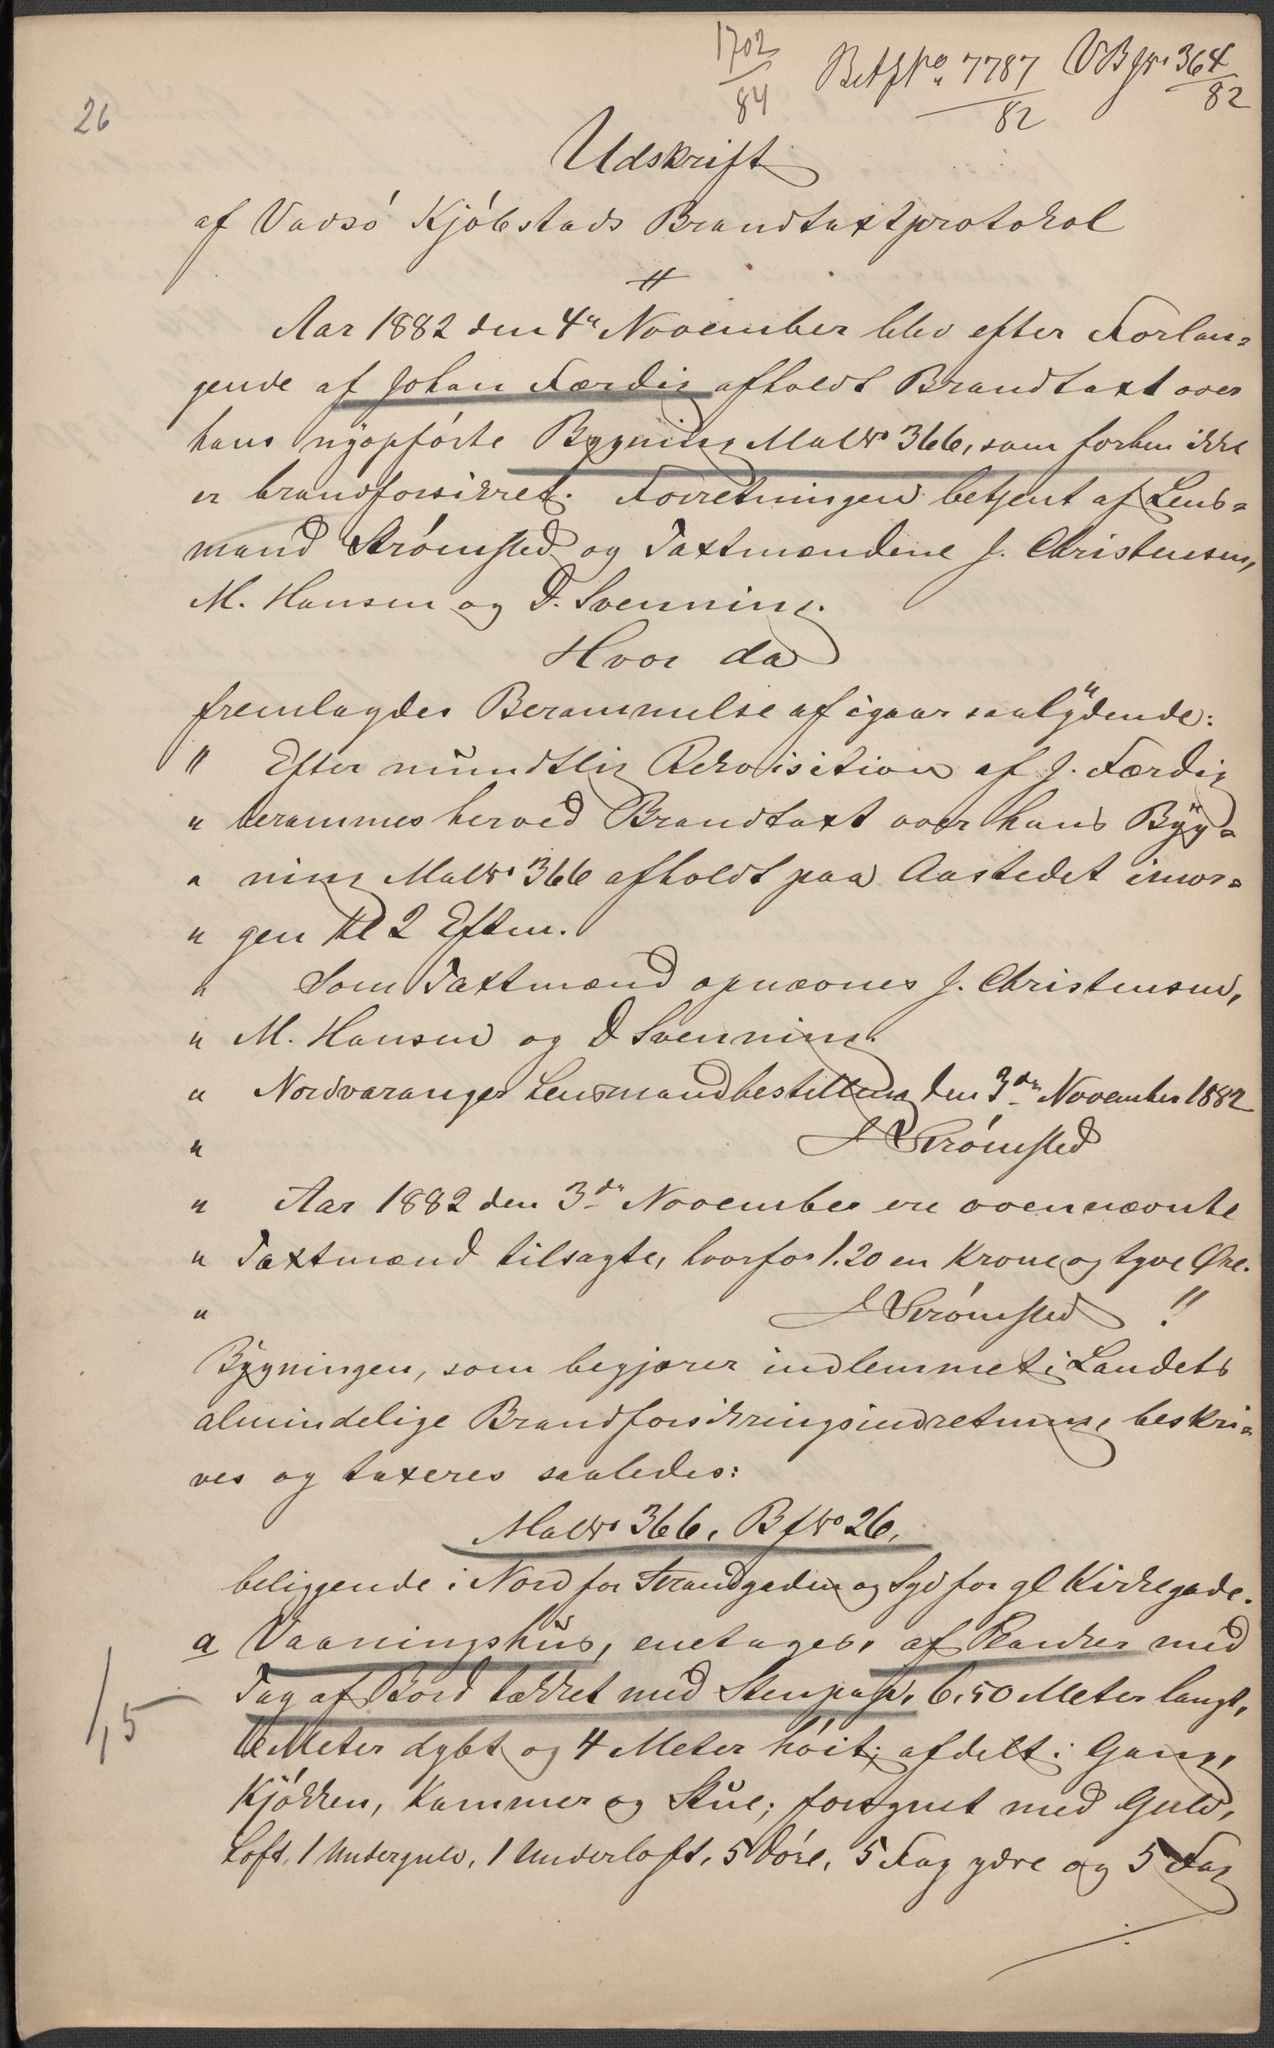 1702/84 BetJNo 7787/82 VBJNo 364/82
26
Udskrift
af Vadsö Kjöbstads Brandtaxtprotokol
Aar 1882 den 4de November blev efter Forlan-
gende af Johan Færdig afholdt Brandtaxt over
hans nyopförte Bygning MatNo 366, som forhen ikke
er brandforsikret. Forretningen betjent af Lens-
mand Strömsted og Taxtmændene J. Christensen,
M. Hansen og D. Svenning.
Hvor da
fremlagdes Berammelse af igaar saalydende:
" Efter mundtlig Rekvisition af J. Færdig
" berammes herved Brandtaxt over hans Byg-
" ning MatNo 366 afholdt paa Aastedet imor-
" gen Kl 2 Eftm.
" Som Taxtmænd opnævnes J. Christensen,
" M. Hansen og D Svenning.
" Nordvaranger Lensmandbestilling den 3die November 1882
" J Strömsted
" Aar 1882 den 3die November ere ovennævnte
" Taxtmænd tilsagte, hvorfor 1.20 en Krone og tyve Øre.
" J Strömsted "
Bygningen, som begjærer indlemmet i Landets
almindelige Brandforsikringsindretning, beskri-
ves og taxeres saaledes:
MatNo 366, BfNo 26,
beliggende i Nord for Strandgaden og Syd for gl Kirkegade.
a Vaaningshus, enetages, af Planker med
Tag af Bord tækket med Stenpap, 6,50 Meter langt,
6 Meter dybt og 4 Meter höit; afdelt i Gang,
1,5
Kjökken, Kammer og Stue; forsynet med Gulv,
Loft, 1 Undergulv, 1 Underloft, 5 Döre, 5 Fag ydre og 5 Fag